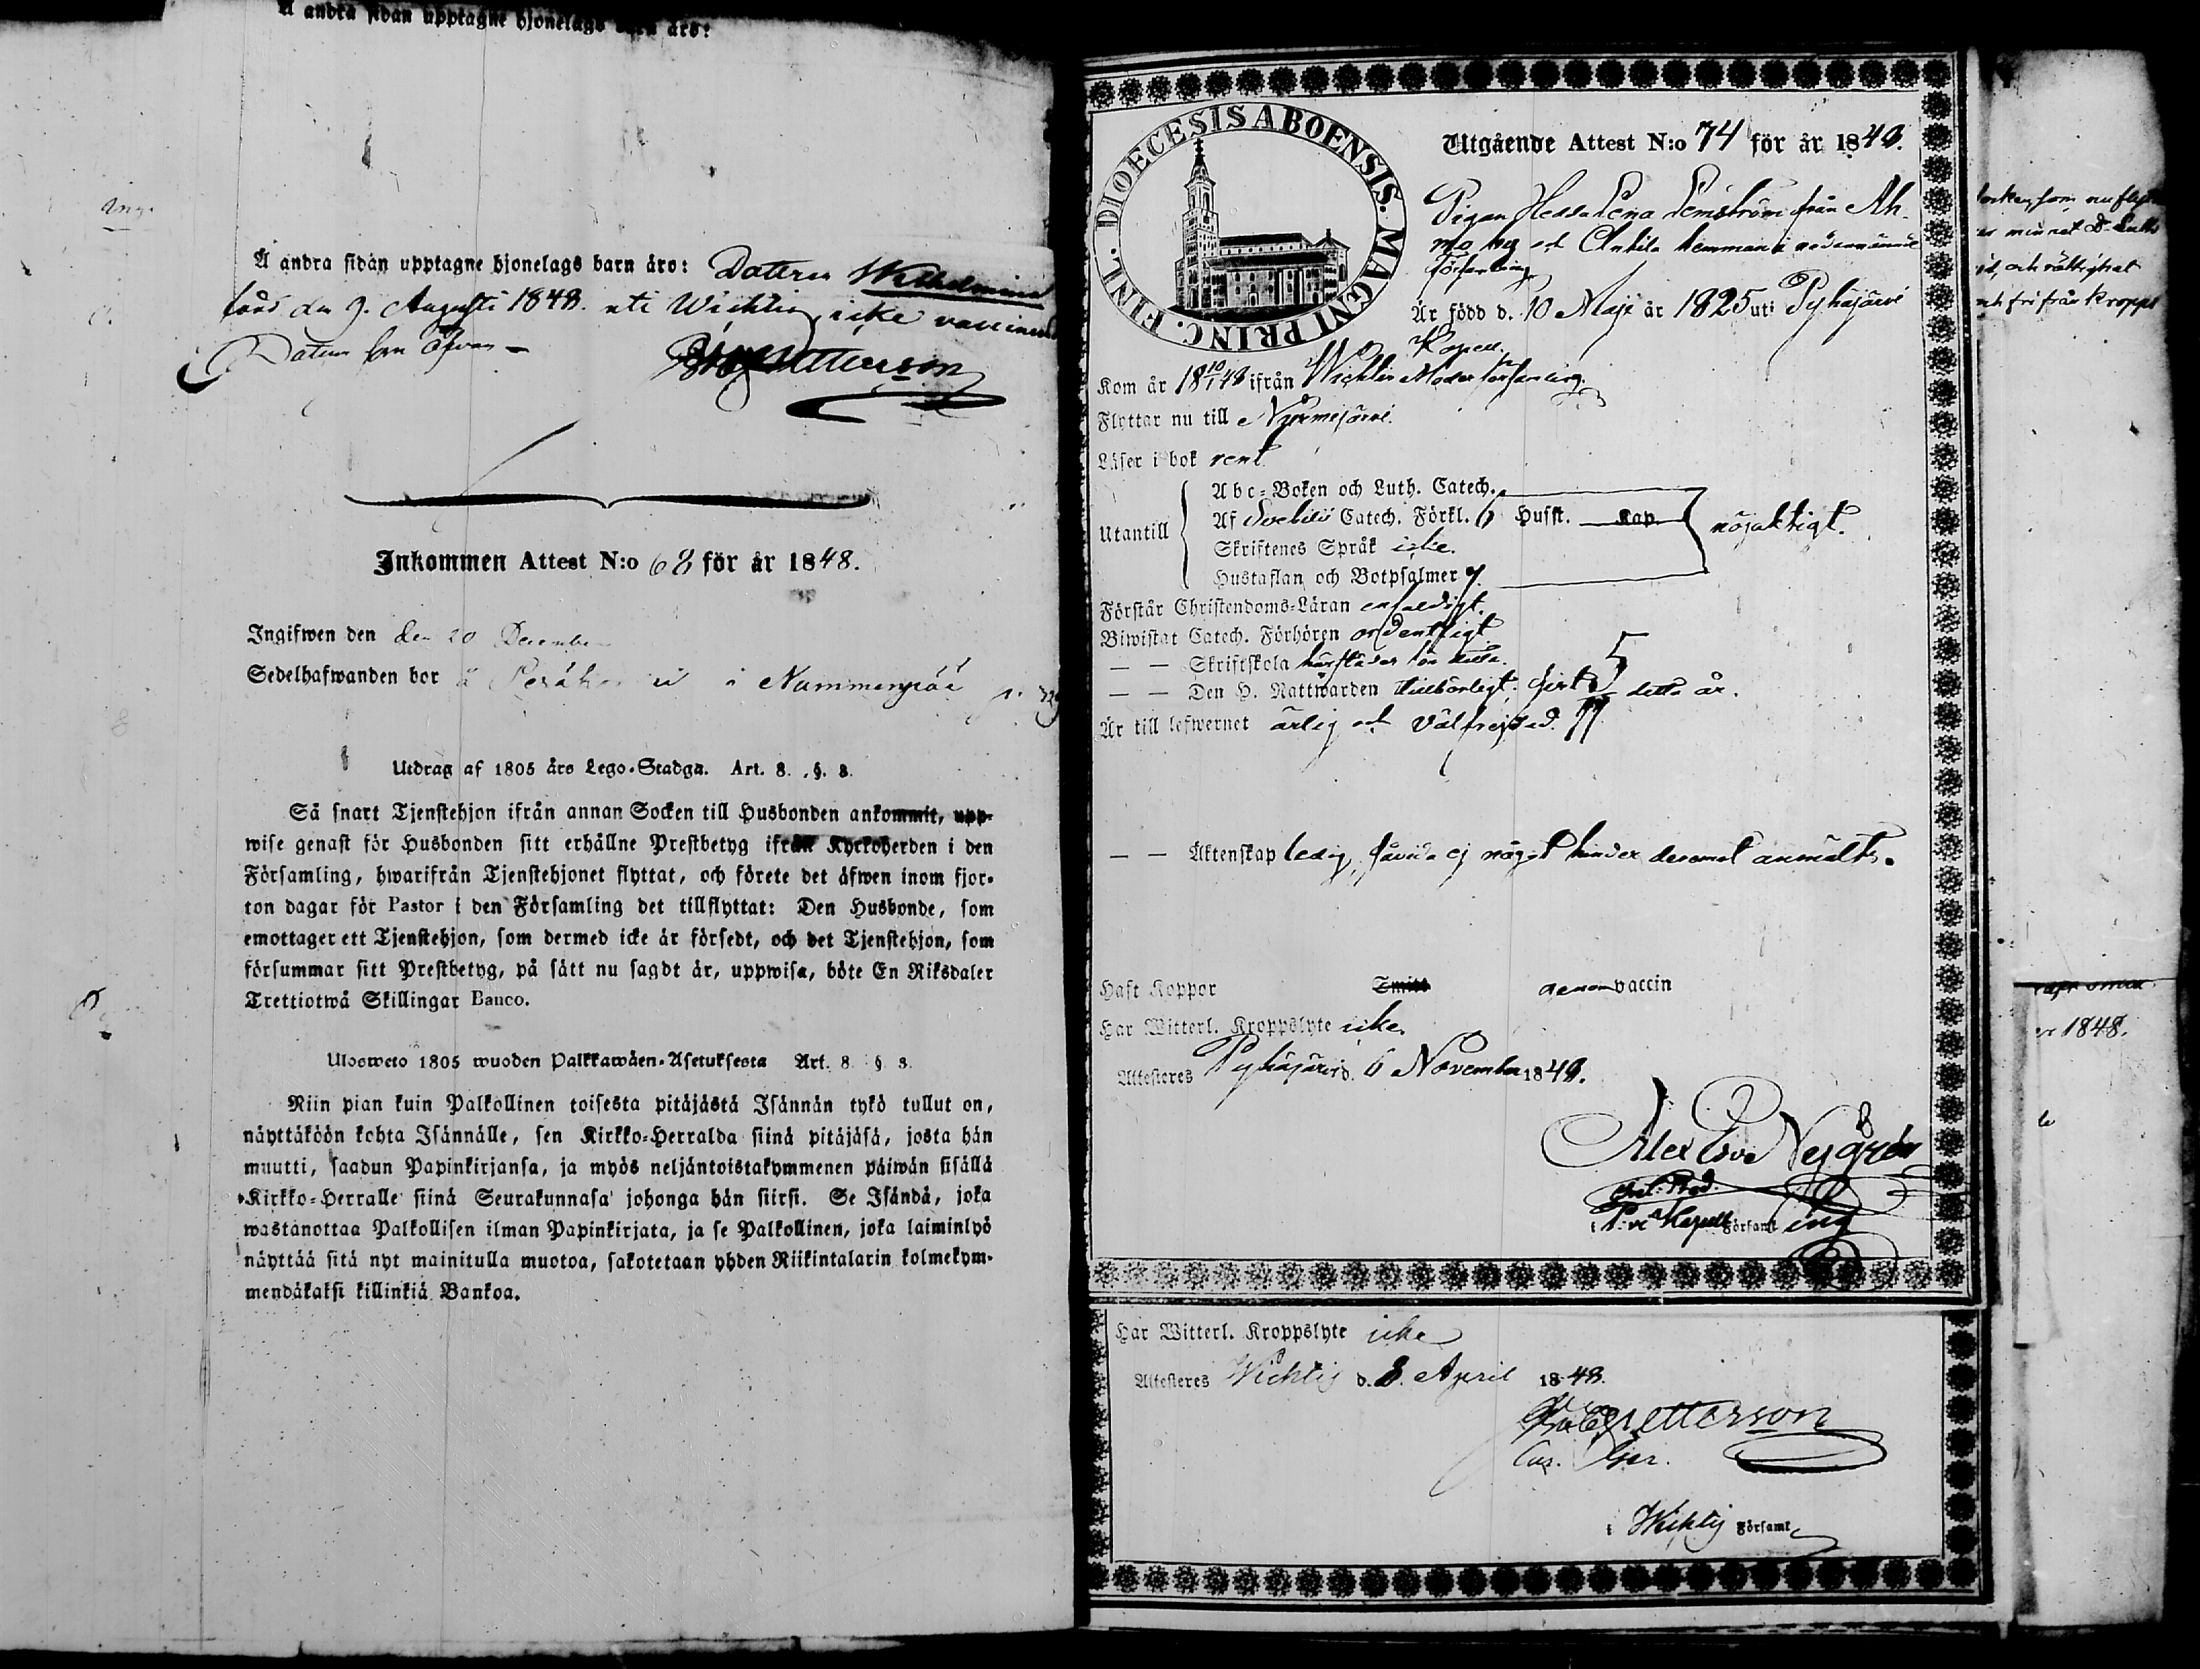 Å andra sidan upptagne hjonelags barn äro:
Å andra sidan upptagne hjonelags barn äro: Dottren Wilhelmina
född den 9. Augusti 1848. uti Wichtis, icke vaccinerad
Datum som ofvan
Petterson
Inkommen Attest N:o 68 för år 1848.
Ingifwen den den 20 December
Sedelhafwanden bor å i Nummenpää
Utdrag af 1805 års Lego-Stadga. Art. 8. §. 3.
Så snart Tjenstehjon ifrån annan Socken till Husbonden ankommit, upp-
wise genast för Husbonden sitt erhållne Prestbetyg ifrån Kyrkoherden i den
Församling, hwarifrån Tjenstehjonet flyttat, och förete det äfwen inom fjor-
ton dagar för Pastor i den Församling det tillflyttat: Den Husbonde, som
emottager ett Tjenstehjon, som dermed icke är försedt, och det Tjenstehjon, som
försummar sitt Prestbetyg, på sätt nu sagdt är, uppwisa, böte En Riksdaler
Trettiotwå Skillingar Banco.
Ulosweto 1805 wuoden Palkkawäen-Asetuksesta Art. 8. §. 3.
Niin pian kuin Palkollinen toisesta pitäjästä Isännän tykö tullut on,
näyttäköön kohta Isännälle, sen Kirkko-Herralda siinä pitäjäsä, josta hän
muutti, saadun Papinkirjansa, ja myös neljäntoistakymmenen päiwän sisällä
Kirkko-Herralle siinä Seurakunnasa johonga hän siirsi. Se Isändä, joka
wastanottaa Palkollisen ilman Papinkirjata, ja se Palkollinen, joka laiminlyö
näyttää sitä nyt mainitulla muotoa, sakotetaan yhden Riikintalarin kolmekym-
mendäkaksi killinkiä Bankoa.
DIOECESIS ABOENSIS. MAGNI PRINC. FINL.
Utgående Attest N:o 74 för år 1848.
Pigan Hedda Lena Lemström från Ah-
mo by och Anttila hemman i nedannämnde
församling
Är född d. 10 Maji år 1825 uti Pyhäjärvi
Kapell.
Kom år 18 10/1 48 ifrån Wichtis Moderförsamling.
Flyttar nu till Nurmijärvi.
Läser i bok rent
Utantill
Abc-Boken och Luth. Catech.
Af Svebilii Catech. Förkl. 6 Husst. Kap.
Skriftenes Språk icke.
Hustaflan och Botpsalmer 7.
nöjaktigt.
Förstår Christendoms-Läran enfaldigt.
Biwistat Catech. Förhören ordentligt
— — Skriftskola
— — Den H. Nattwarden tillbörligt. sist detta år.
Är till lefwernet ärlig och välfrejdad.
— — Äktenskap ledig, såvida ej något hinder deremot anmälts.
Haft Koppor Smitt genom vaccin
Har Witterl. Kroppslyte icke.
Attesteres Pyhäjärvi d. 6 November 1848.
Alex Nygrén
i Kapell Församling
Har Witterl. Kroppslyte icke
Attesteres Wichtis d. 8. April 1848.
Petterson
i Wichtis Församl.
som nu flyttar
och rättighet
och fri från kropps
1848.